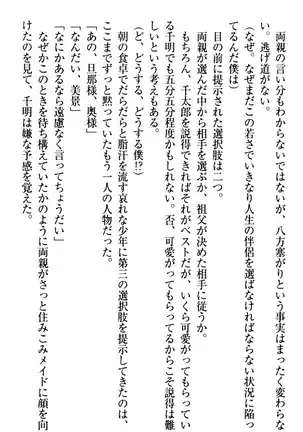 両親の言い分もわからないではないが、八方塞がりという事実はまったく変わらな
い。逃げ道がない。
（なぜ、なぜまだこの若さでいきなり人生の伴侶を選ばなければならない状況に陥っ
てるんだ僕は）
目の前に提示された選択肢は二つ。
両親が選んだ中から相手を選ぶか、祖父が決めた相手に従うか。
もちろん、千太郎を説得できればそれがベストだが、いくら可愛がってもらってい
る千明でも五分五分程度かもしれない。否、可愛がってもらってるからこそ説得は難
しいという考えもある。
（ど、どうする、どうする僕!?）
朝の食卓でだらだらと脂汗を流す哀れな少年に第三の選択肢を提示してきたのは、
ここまでずっと黙っていたもう一人の人物だった。
「あの、旦那様、奥様」
「なんだい、美景」
「なにかあるなら遠慮なく言ってちょうだい」
なぜかこのときを待ち構えていたかのように両親がさっと住みこみメイドに顔を向
けたのを見て、千明は嫌な予感を覚えた。